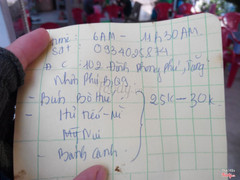 Time: 6AM - 11H30AM.
Sđt: 0934025874
Đ C: 102 Đình Phong Phú, Tăng
Nhơn Phú B, Q9
- Bún Bò Huế
- Hủ Tiếu - Mì
Nui
- Bánh canh
25k - 30k